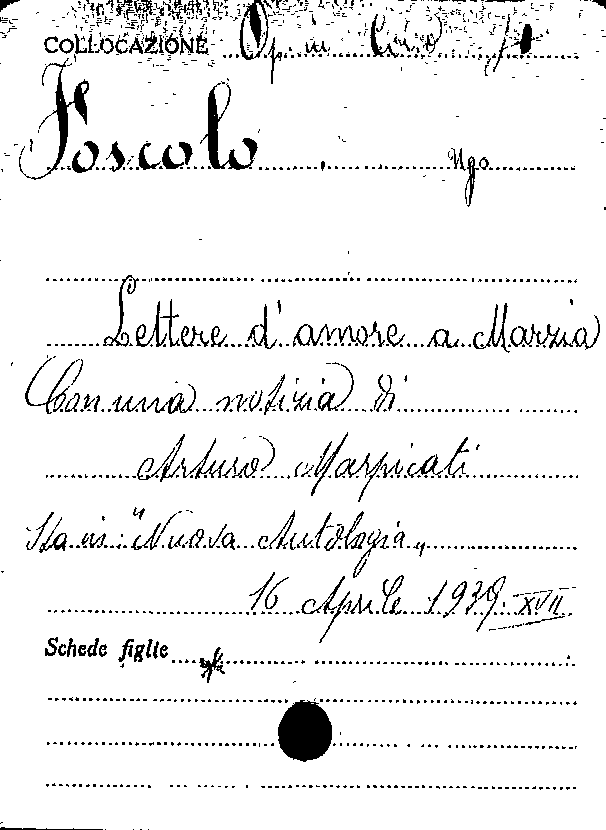 COLLOCAZIONE Op. in
Foscolo, Ugo
Lettere d'amore a Marzia
Con una notizia di
Arturo Marpicati
Sta in: "Nuova Antologia„
16 Aprile 1939. XVII
Schede figlie